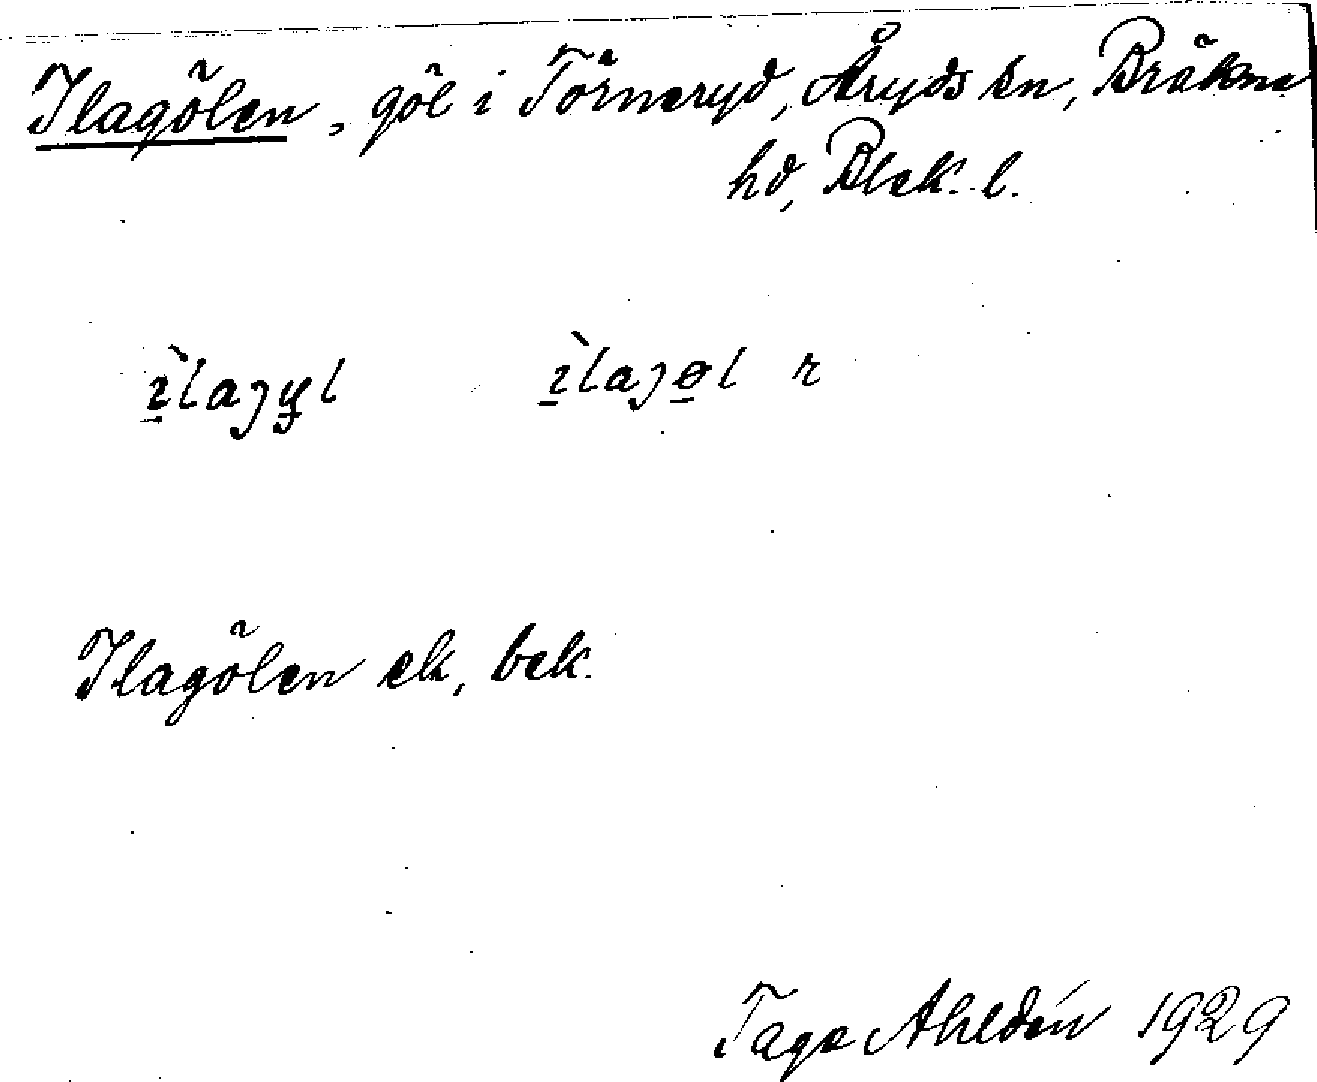 Ilagölen, göl i Törneryd, Åryds sn, Bräkne
hd, Blek. l.
ı̲̀laȷy̲l ı̲̀laȷɵ̲l r
Ilagölen ek, bek.
Tage Ahldén 1929